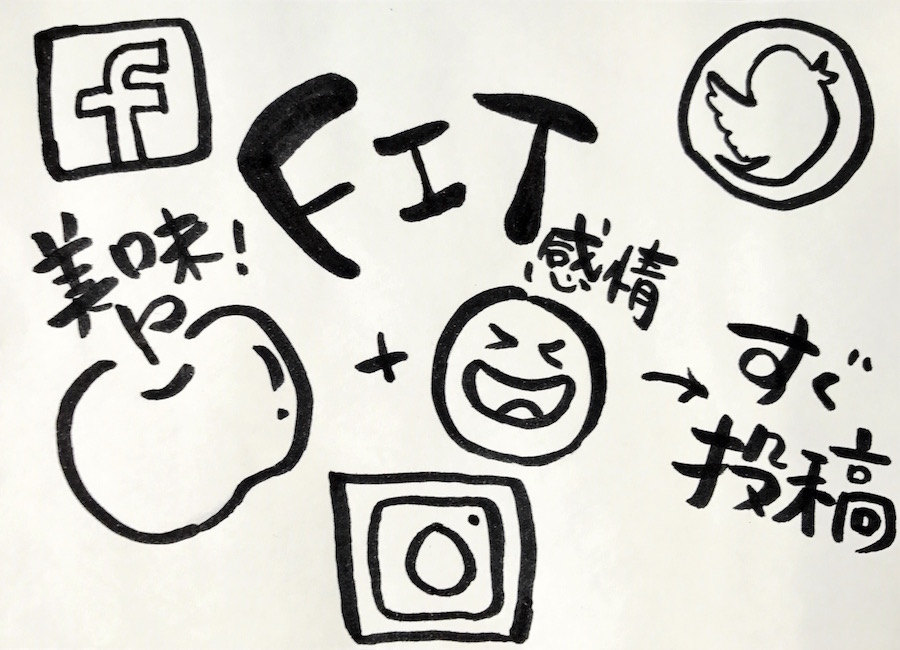 FIT
美味!
感情
+
→
すぐ
投稿